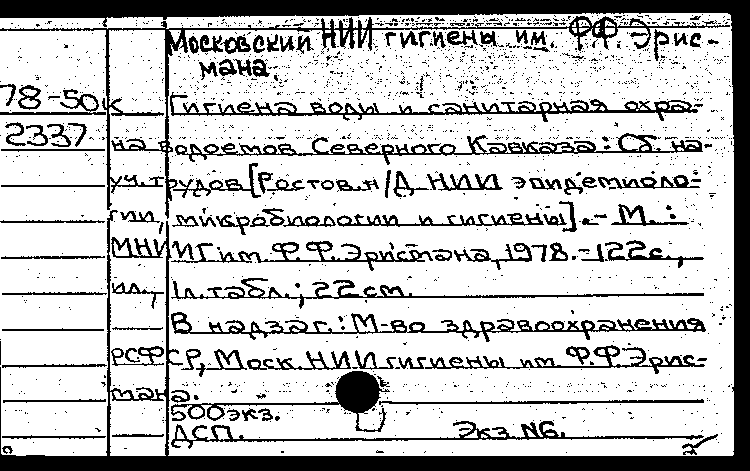 Московский НИИ гигиены им. Ф.Ф. Эрис-
мана.
78-50к
Гигиена воды и санитарная охра-
2337
на водоемов Северного Кавказа: Сб. на-
уч. трудов [Ростов. н/Д НИИ эпидемиоло-
гии, микробиологии и гигиены]. - М. :
МНИИГ им. Ф.Ф. Эрисмана, 1978. - 122с.,
ил., 1л. табл.; 22 см.
В надзаг.: М-во здравоохранения
РСФСР, Моск. НИИ гигиены им. Ф.Ф. Эрис-
мана.
500 экз.
ДСП. Экз. №6.